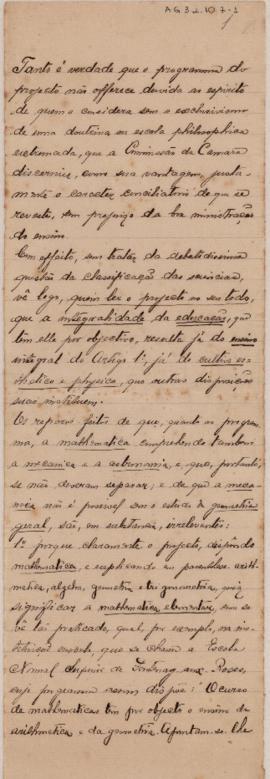 AG 3.2.10.7-1
1
Tanto é verdade que o programma do
projecto não offerece duvida ao espirito
de quem o considera sem o exclusivismo
de uma doutrina ou escola philosophica
extremada, que a Commissão da Camara
discerniu, como sua vantagem, justa-
mente o caracter conciliatorio de que se
reveste, sem prejuizo da boa ministração
do ensino.
Com effeito, sem tratar da debatidissima
questão da classificação das sciencias,
vê logo, quem ler o projecto no seu todo,
que a integralidade da educação, que
tem elle por objectivo, resulta já do ensino
integral do Artigo 1º, já do cultivo es-
thetico e physico, que outras disposições
suas instituem.
Os reparos feitos de que, quanto ao program-
ma, a mathematica comprehende tambem
a mecanica e a astronomia e, que, portanto,
se não deveram separar; e de que a meca-
nica não é possivel sem o estudo da geometria
geral, são, em substancia, irrelevantes:
1º porque claramente o projecto, dispondo
mathematica, e explicando em parenthese arith-
metica, algebra, geometria e trigonometria, quiz
significar a mathematica elementar, como se
vê lá praticado, qual, por exemplo, na ins-
tituição modelo, que se chama a Escola
Normal Superior de Fontenay-aux-Roses,
cujo programma assim dispõe: O curso
de mathematicas tem por objecto o ensino da
arithmetica e da geometria. Ajuntam-se-lhe